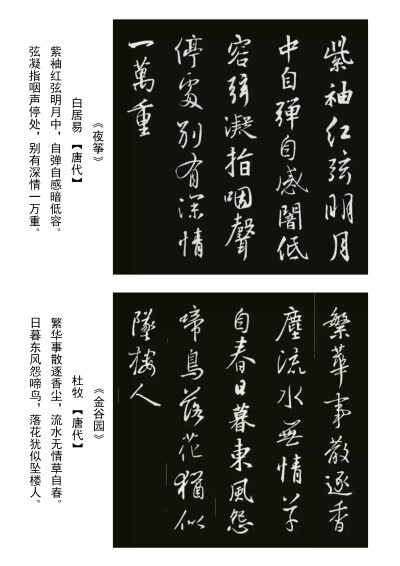 紫袖紅弦明月
中自彈自感闇低
容弦凝指咽聲
停處別有深情
一萬重
《夜筝》
白居易 【唐代】
紫袖红弦明月中，自弹自感暗低容。
弦凝指咽声停处，别有深情一万重。
繁華事散逐香
塵流水無情草
自春日暮東風怨
啼鳥落花猶似
墜樓人
《金谷园》
杜牧 【唐代】
繁华事散逐香尘，流水无情草自春。
日暮东风怨啼鸟，落花犹似坠楼人。